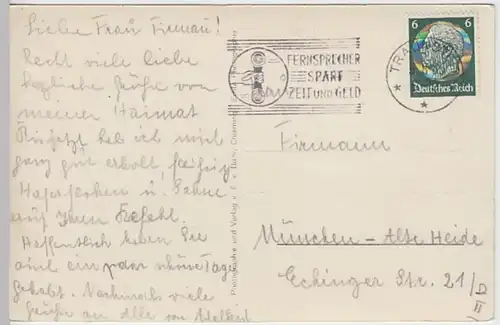 Liebe Frau Firmann!
Recht viele liebe
herzliche Grüße von
meiner Heimat
Bis jetzt hab ich mich
ganz gut erholt, fleißig
Haferflocken u. Sahne
auf Ihren Befehl.
Hoffentlich haben Sie
auch ein paar schöne Tage
gehabt. Nochmals viele
Grüße an Alle von
FERNSPRECHER
SPART
ZEIT UND GELD
6 6
Deutsches Reich
TRA
Firmann
München – Alte Heide
Echinger Str. 21/D
II
Photographie und Verlag v.